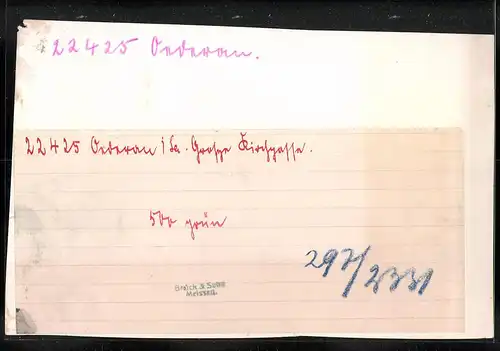 22425 Oederan.
22425 Oederan i/Sa. Große Kirchgasse.
500 grün
297/2331
Brück & Sohn
Meissen.